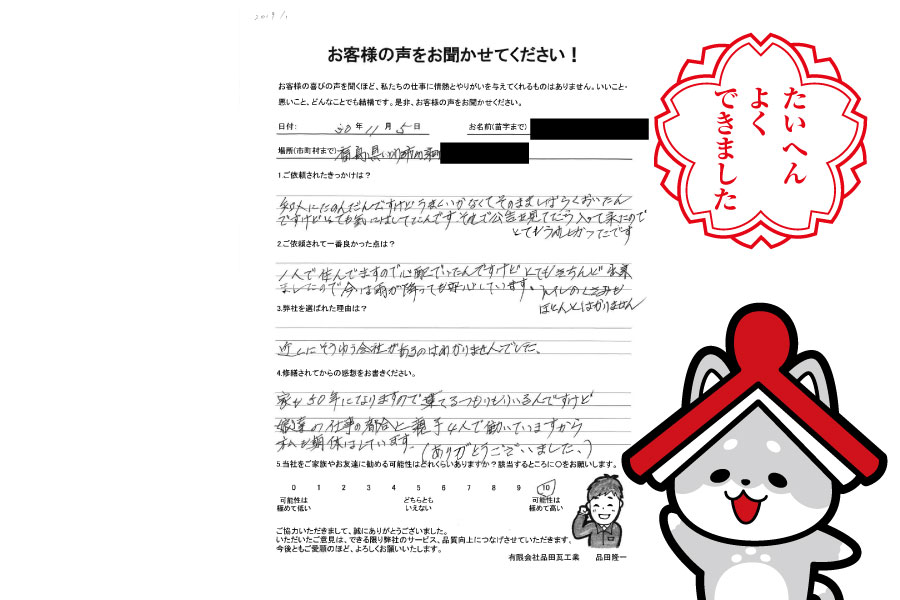 2019/1.
お客様の声をお聞かせてください！
お客様の喜びの声を聞くほど、私たちの仕事に情熱とやりがいを与えてくれるものはありません。いいこと・
悪いこと。どんなことでも結構です。是非、お客様の声をお聞かせください。
日付: 30年 11月 5日 お名前(苗字まで)
場所(市町村まで) 福島県いわき市
1.ご依頼されたきっかけは？
知人にたのんだんですけどうまくいかなくてそのまましばらくおいたん
ですけどいても気にはしてたんです それで公告を見てたら入って来たので
とてもうれしかったです
2.ご依頼されて一番良かった点は？
1人で住んでますので心配でいったんですけど とてもきちんと 出来
ましたので今は雨が降っても安心しています。トイレのくさみも
ほとんどわかりません
3.弊社を選ばれた理由は？
近くにそうゆう会社があるのはわかりませんでした。
4.修繕されてからの感想をお書きください。
家も50年になりますので 棄てるつもりもいるんですけど
の仕事の都合と親子4人で働いていますから
私も期待はしています。(ありがとうございました。)
5.当社をご家族やお友達に勧める可能性はどれくらいありますか？該当するところに〇をお願いします。
0 1 2 3 4 5 6 7 8 9 10
可能性は どちらとも 可能性は
極めて低い いえない 極めて高い
ご協力いただきまして、誠にありがとうございました。
いただいたご意見は、できる限り弊社のサービス、品質向上につなげさせていただきます。
今後ともご愛顧のほど、よろしくお願いいたします。
有限会社品田瓦工業 品田隆一
たいへん
よく
できました